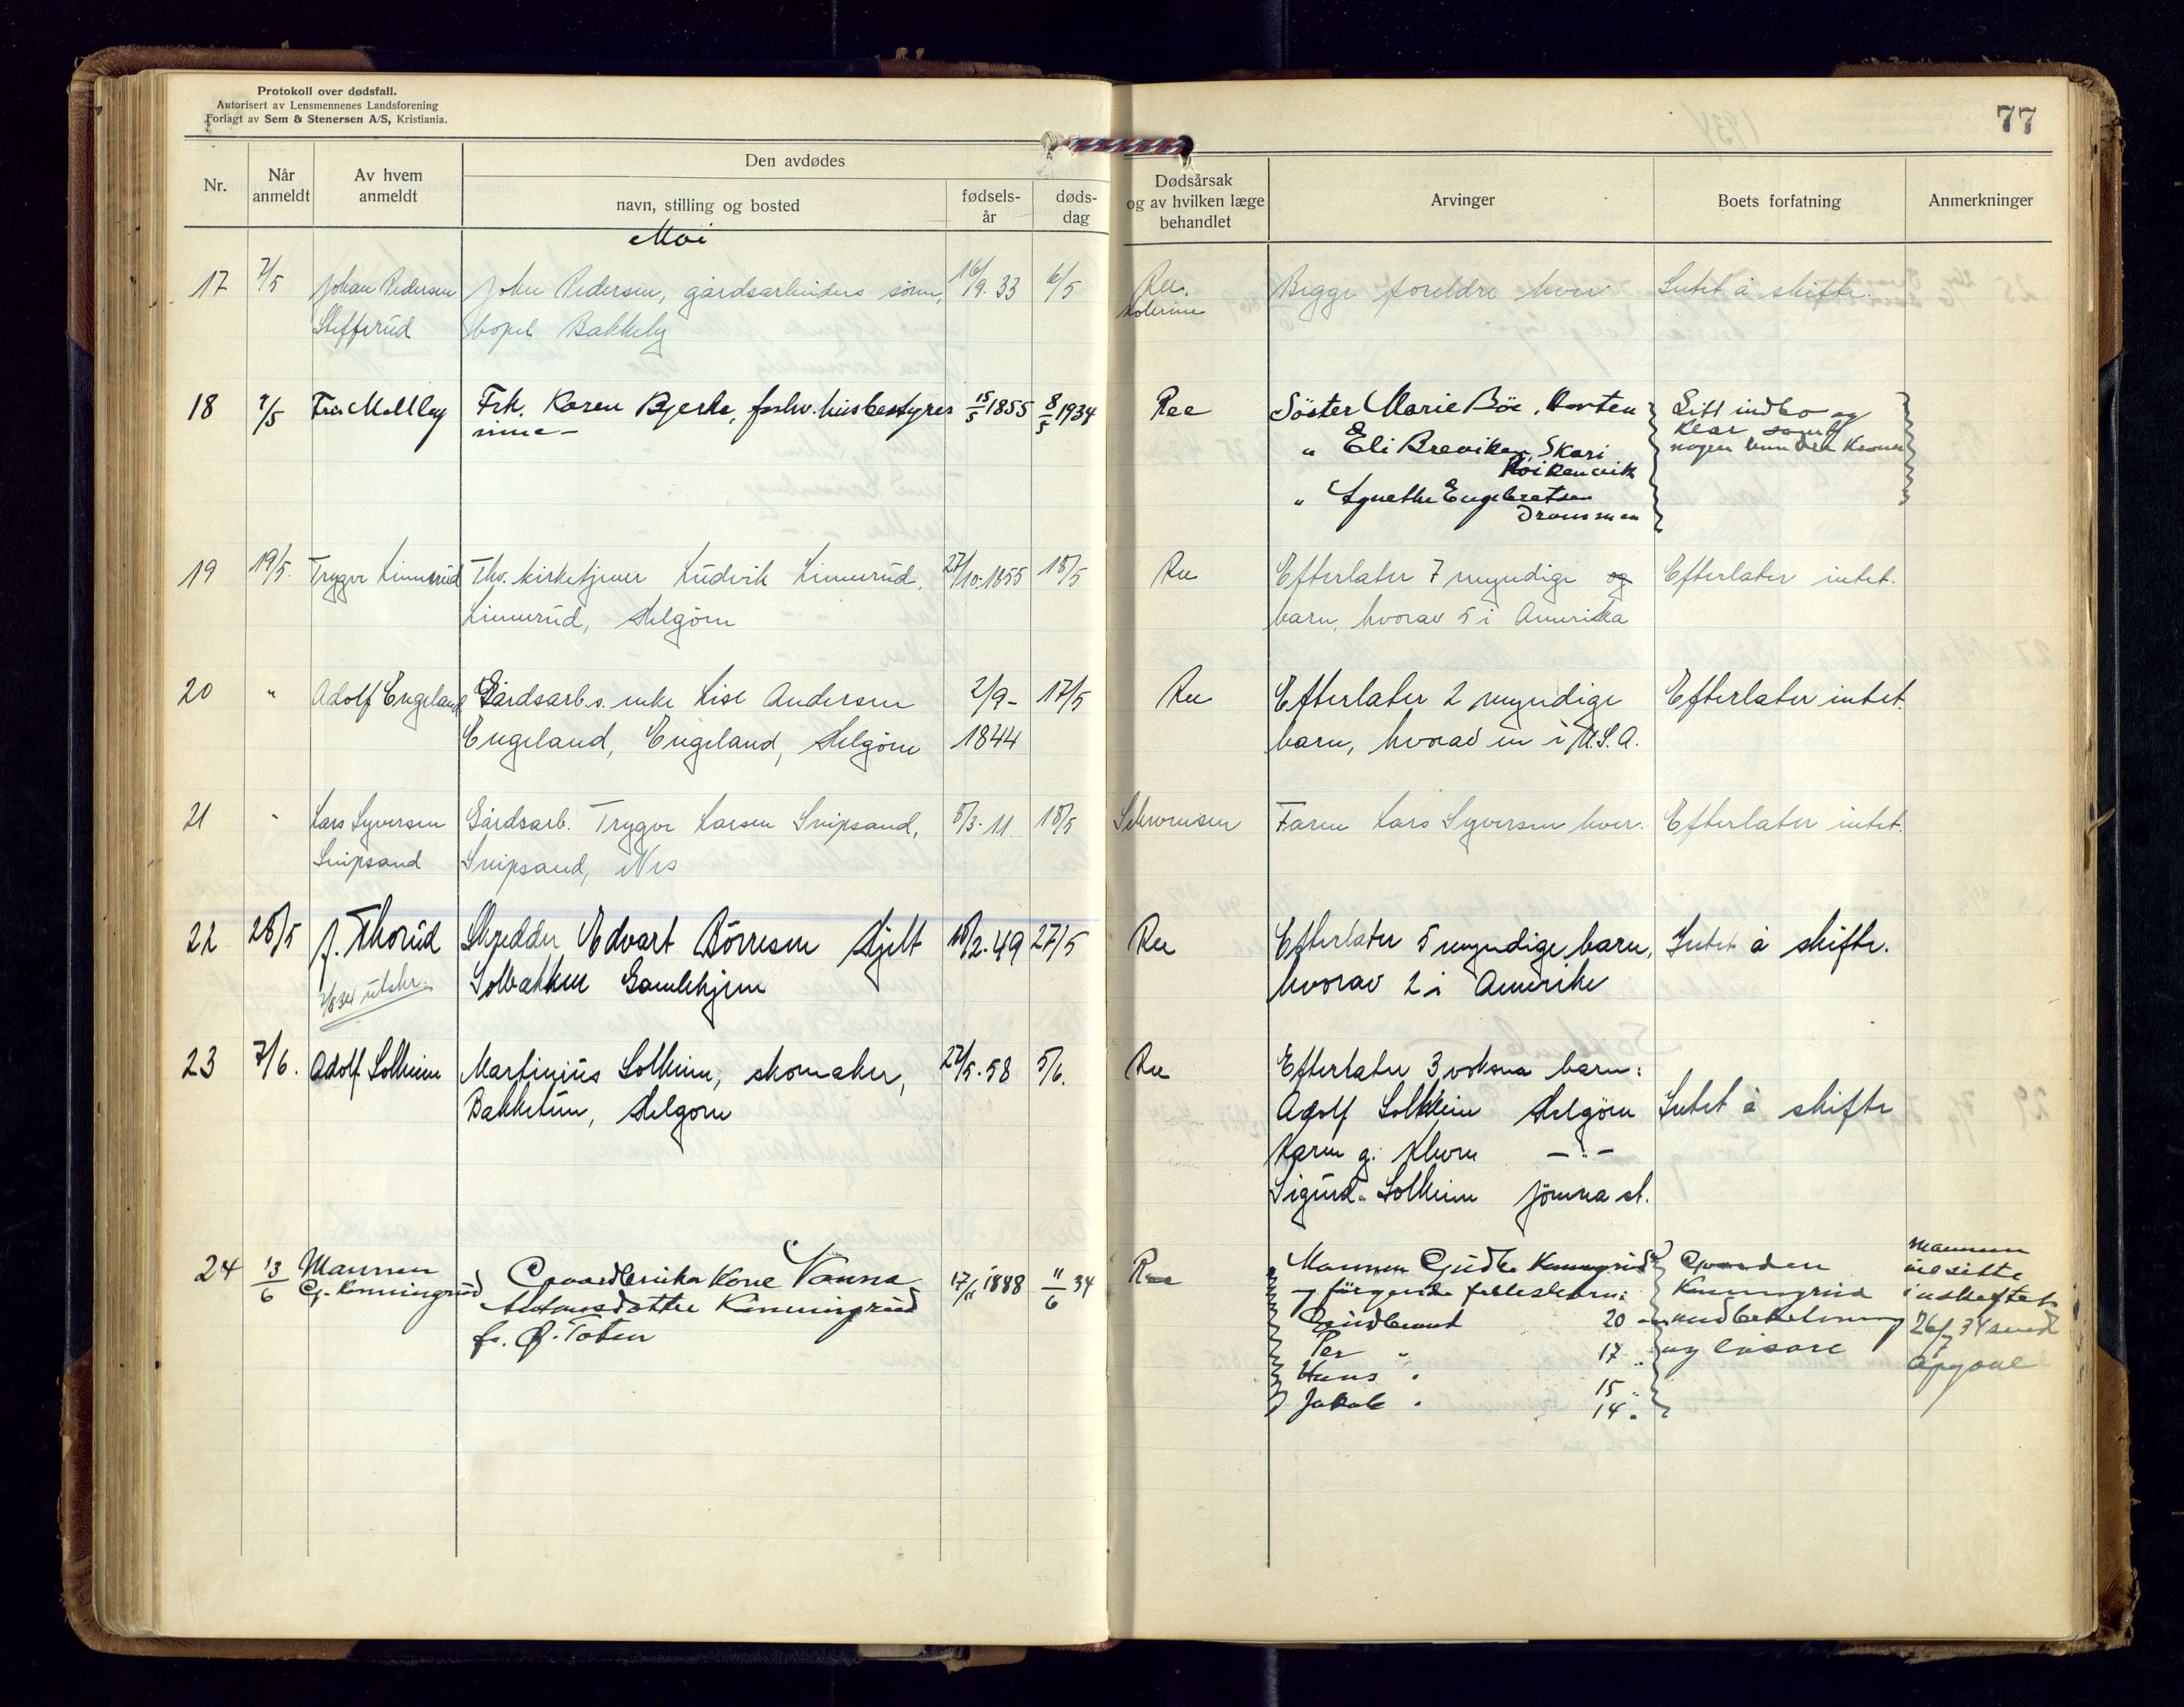 Protokoll over dødsfall.
Autorisert av Lensmennenes Landsforening
Forlagt av Sem & Stenersen A/S, Kristiania.
77
1934
Nr.
Når anmeldt
Av hvem anmeldt
Den avdødes
navn, stilling og bosted
fødsels-år
døds-dag
Dødsårsak og av hvilken læge behandlet
Arvinger
Boets forfatning
Anmerkninger
Mai
17 7/5 Johan Pedersen John Pedersen, gårdsarbeiders sönn, 16/9. 33 6/5 Ree. Begge foreldre lever Intet å skifte.
Stefferud bopel Bakkely
18 9/5 Frk. Karen Bjerke, forhv. husbestyrer 15/5 1855 8/5 1934 Ree Söster Marie Böe, Horten Litt indbo og
inne klar
" Eli Breviken, Skari nogen hundre kroner
Röikenvik
" Agnethe Engebretsen
Drammen
19 19/5. Trygve Linnerud Fhv. kirketjener Ludvik Linnerud, 27/10-1855 18/5 Ree Efterlater 7 myndige og Efterlater intet.
Linnerud, Helgöen barn, hvorav 5 i Amerika
20 " Adolf Engeland Gårdsarb.s. enke Lise Andersen 2/9- 17/5 Ree Efterlater 2 myndige Efterlater intet.
Engeland, Engeland, Helgöen 1844 barn, hvorav en i U.S.A.
21 " Lars Syversen Gårdsarb. Trygve Larsen Snipsand, 8/3-11. 18/5 Schromsen Faren Lars Syversen lever. Efterlater intet.
Snipsand Snipsand, Nes
22 28/5 J. Thorud Skredder Edvart Börresen Hjelt 18/2-49 27/5 Ree Efterlater 5 myndige barn, Intet å skifte.
utskr. Solbakken Gamlehjem hvorav 2 i Amerika
23 7/6. Adolf Solheim Martinius Solheim, skomaker, 27/5-58 5/6. Ree Efterlater 3 voksne barn:
Bakketun, Helgöen Adolf Solheim Helgöen Intet å skifte
Karen g. Kleven -"-
Sigurd Solheim Jömna st.
24 13/6 Mannen Gaardbruker Kone Vanna 17/11 1888 11/6 34 Ree Mannen Gudbr Kemmingrud Gaarden Mannen
G. Kemmingrud Antonsdatter Kemmingrud og fölgende fellesbarn: Kemmingrud vil sitte
f. Ö. Toten Gudbrand 20 " med besetning i uskiftet
Per " 17 " og lösöre 26/7 34 med
Hans " 15 " opgave
Jakob " 14 "